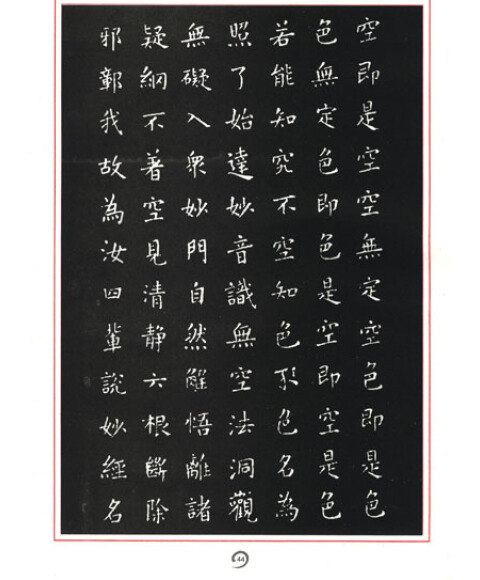 空即是空空無定空色即是色
色無定色即色是空即空是色
若能知究不空知色不色名為
照了始達妙音識無空法洞觀
無礙入衆妙門自然解悟離諸
疑網不著空見清静六根斷除
邪鄣我故為汝四輩說妙經名
44